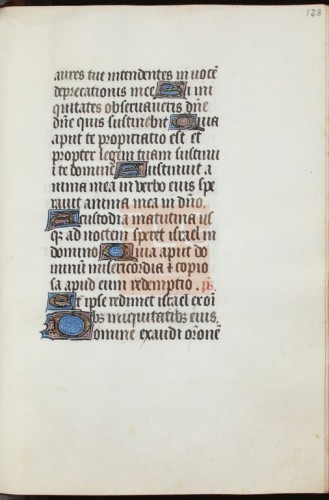 123
aures tue intendentes in uocē
deprecationis mee Si ini
quitates obseruaueris dn̄e
dn̄e quis sustinebit Quia
aput te propitiatio est et
propter legem tuam sustinu
i te domine Sustinuit a
nima mea in uerbo eius spe
rauit anima mea in dn̄o.
A custodia matutina us
q̄ ad noctem speret israel in
domino Quia aput do
minū misericordia ⁊ copio
sa apud eum redemptio . ps̄.
Et ipse redimet israel ex oī
bꝫ iniquitatibꝫ eius.
Domine exaudi orōnē